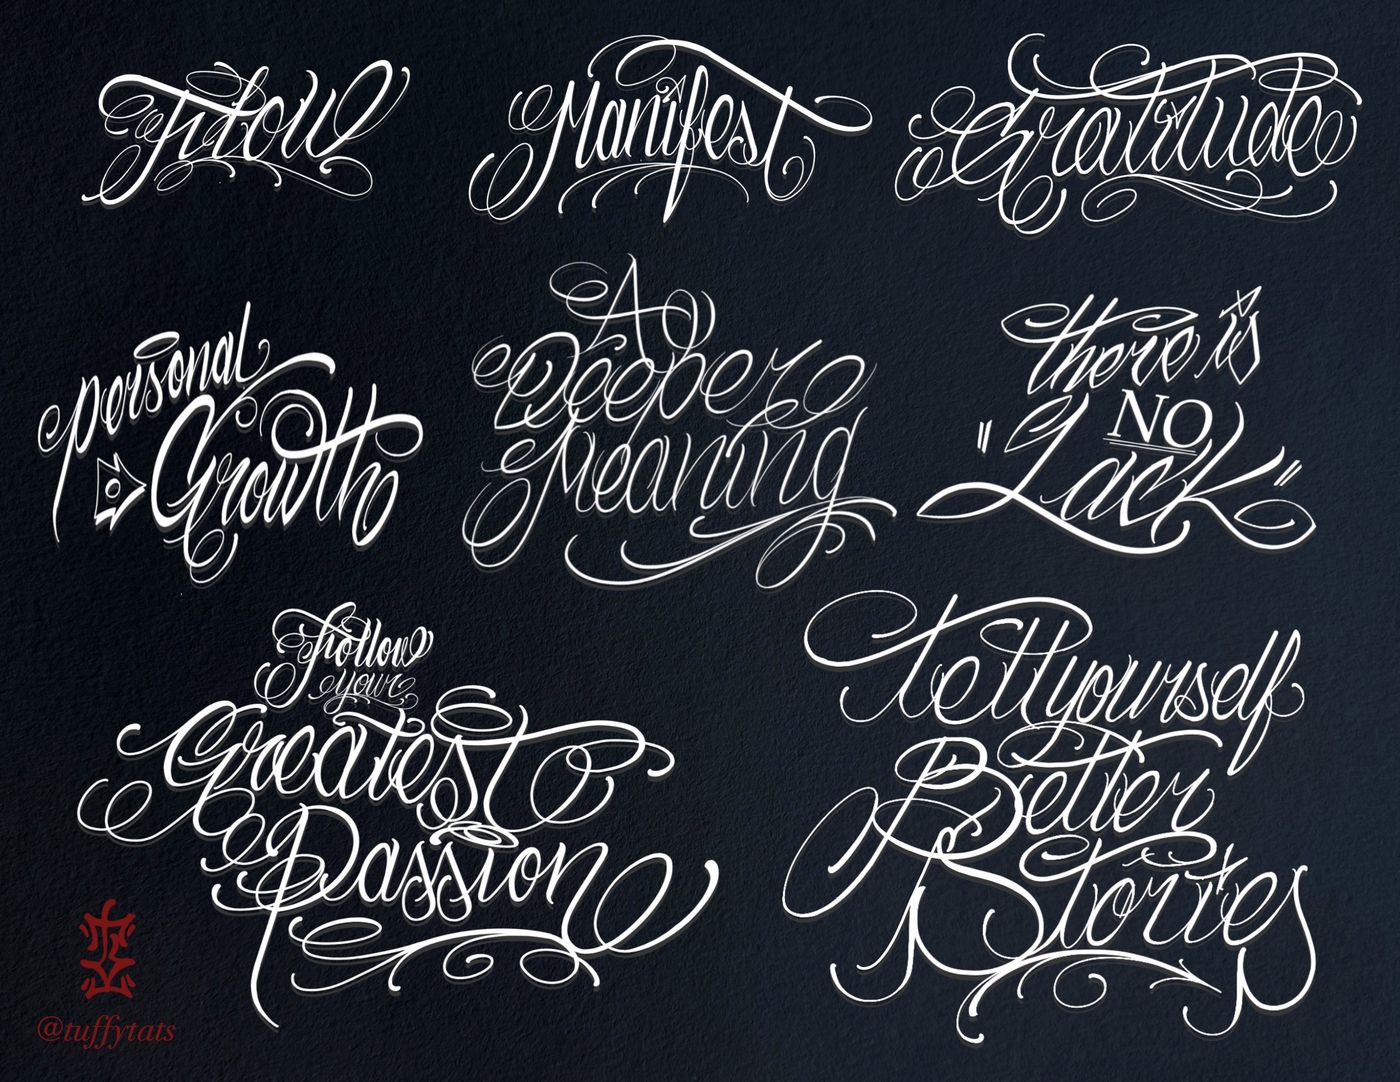 Manifest
Gratitude
personal
Growth
A
Deeper
Meaning
there is
NO
"Lack"
Follow
your
Greatest
Passion
tell yourself
Better
Stories
@tuffytats